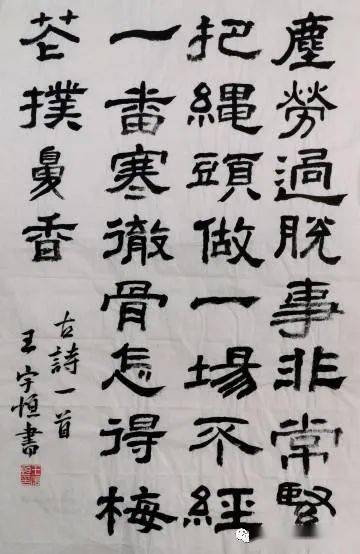 塵勞過脫事非常賢
把縄頭做一場不經
一番寒徹骨怎得梅
花撲鼻香
古詩一首
王宇恒書